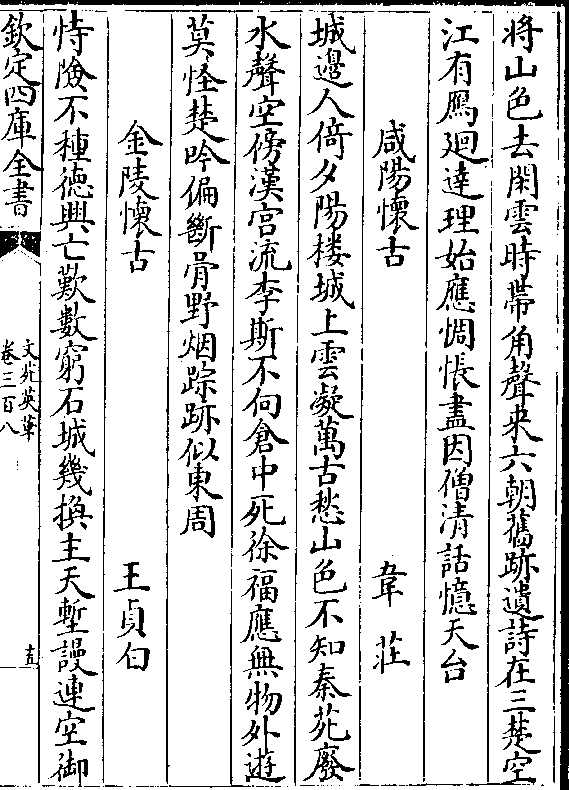 將山色去閑雲時帶角聲來六朝舊跡遺詩在三楚空
江有鴈廻達理始應惆悵盡因僧清話憶天台
咸陽懷古 韋莊
城邊人倚夕陽楼城上雲凝萬古愁山色不知秦苑廢
水聲空傍漢宫流李斯不向倉中死徐福應無物外遊
莫怪楚吟偏斷骨野烟踪跡似東周
金陵懷古 王貞白
恃險不種徳興亡歎數窮石城幾換主天塹謾連空御
欽定四庫全書
文苑英華
卷三百八
十五